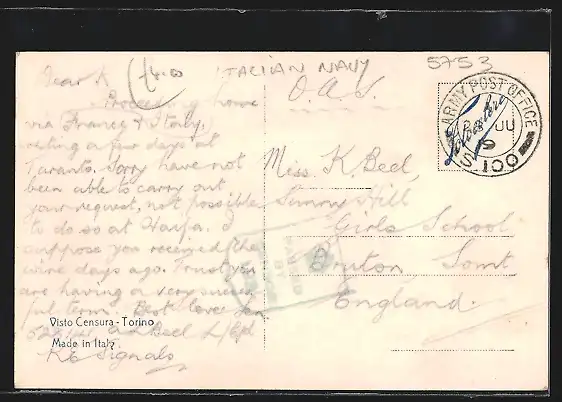 ITALIAN NAVY
5753
Dear K
Proceeding home
via France & Italy,
resting a few days at
Taranto. Sorry have not
been able to carry out
your request, not possible
to do so at Haifa. I
suppose you received the
wire days ago. Trust you
are having a very success
ful term. Best love
Bell L/Cpl
Signals
O.A.S.
Miss K. Bell,
Sunny Hill
Girls School
Bruton Somt
England.
ARMY POST OFFICE
JU
S. 100
Visto Censura - Torino
Made in Italy